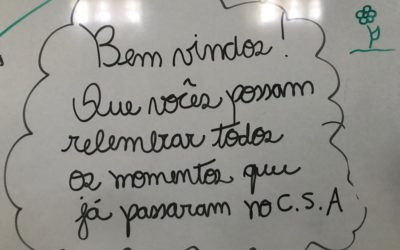 Bem vindos!
Que vocês possam
relembrar todos
os momentos que
já passaram no C.S.A